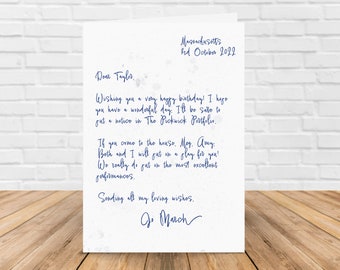 Massachusetts
2nd October 2022
Dear Taylor,
Wishing you a very happy birthday! I hope
you have a wonderful day. I'll be sure to
put a notice in The Pickwick Portfolio.
If you come to the house, Meg, Amy,
Beth and I will put on a play for you!
We really do put on the most excellent
performances.
Sending all my loving wishes,
Jo March